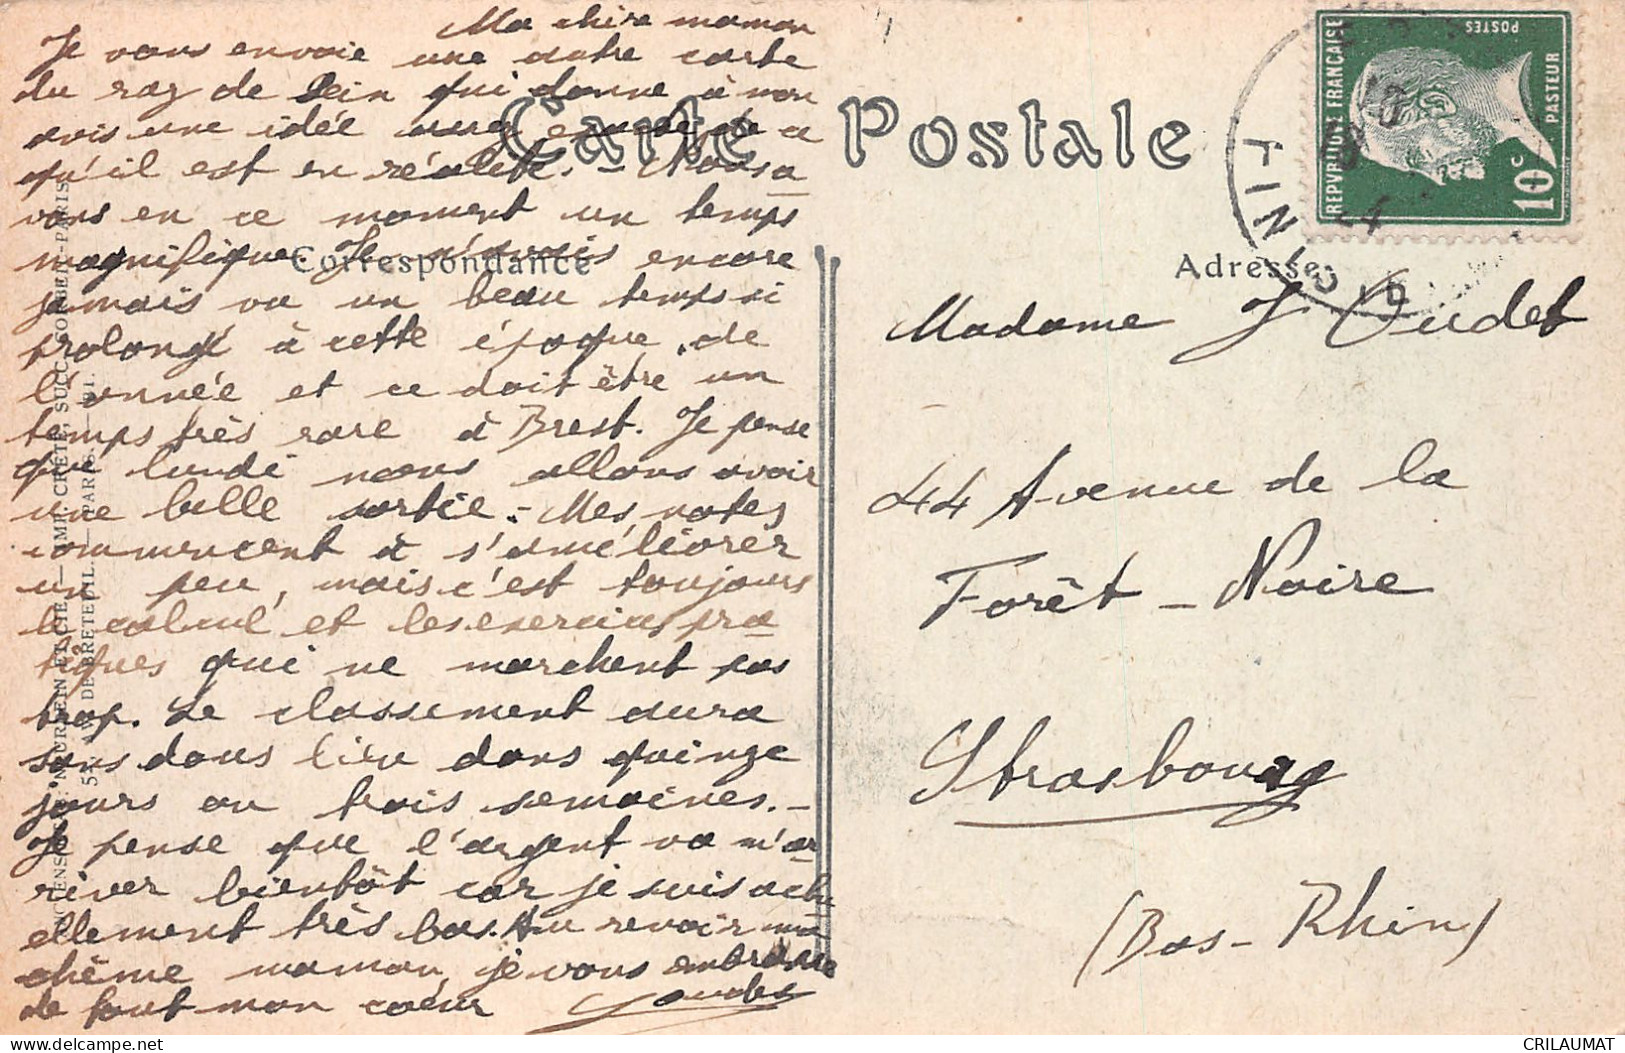 Ma chère maman
Je vous envoie une autre carte
du raz de Sein qui donne à mon
avis une idée assez exacte de ce
qu'il est en réalité. - Nous a
vons en ce moment un temps
magnifique. Je n'avais encore
jamais vu un beau temps si
prolongé à cette époque de
l'année et ce doit être un
temps très rare à Brest. Je pense
que lundi nous allons avoir
une belle sortie. - Mes notes
commencent à s'améliorer
un peu, mais c'est toujours
le calcul et les exercices pra
tiques qui ne marchent pas
trop. Le classement aura
sans doute lieu dans quinze
jours ou trois semaines. -
Je pense que l'argent va m'ar
river bientôt car je suis actu
ellement très bas. Au revoir ma
chème maman, je vous embrasse
de tout mon cœur
Carte Postale
Correspondance
Adresse
Madame J Oudet
44 Avenue de la
Forêt - Noire
Strasbourg
(Bas-Rhin)
REPVBLIQVE FRANÇAISE
POSTES
PASTEUR
10c
FINIST
24
IMP. CRÉTÉ, SUCC. CORBEIL-PARIS
DE BRETEUIL. — PARIS.
CRILAUMAT